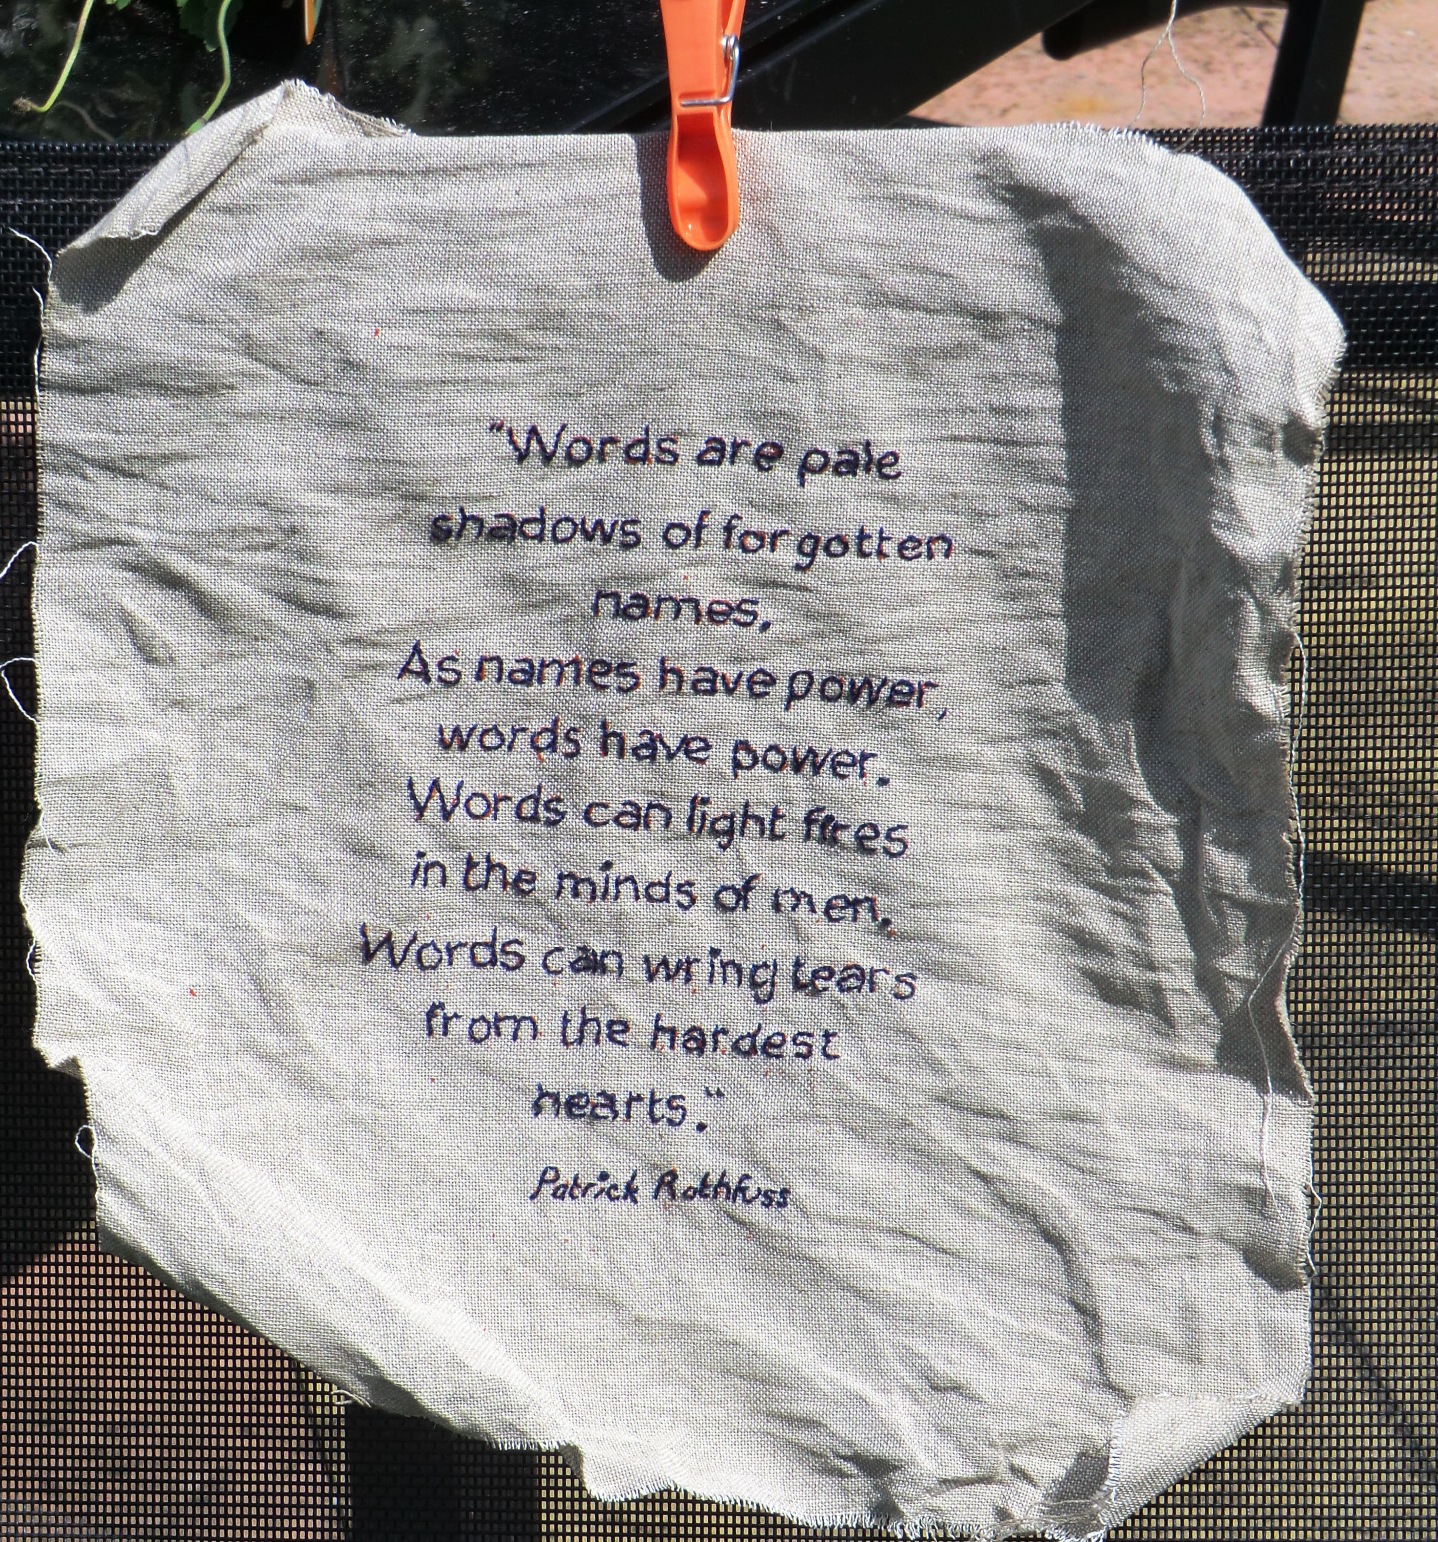 "Words are pale
shadows of forgotten
names.
As names have power,
words have power.
Words can light fires
in the minds of men.
Words can wring tears
from the hardest
hearts."
Patrick Rothfuss